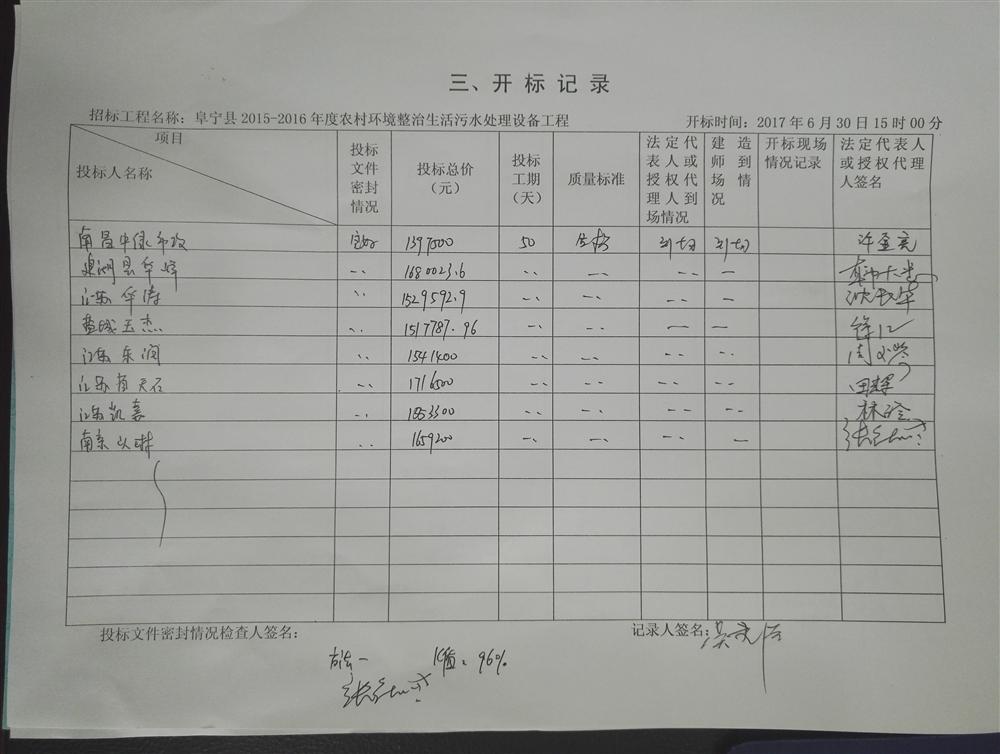 三、开标记录
招标工程名称：阜宁县 2015-2016 年度农村环境整治生活污水处理设备工程 开标时间：2017 年 6 月 30 日 15 时 00 分
项目
投标人名称
投标文件密封情况
投标总价（元）
投标工期（天）
质量标准
法定代表人或授权代理人到场情况
建造师到场情况
开标现场情况记录
法定代表人或授权代理人签名
南昌中绿市政 完好 1397500 50 合格 到场 到场
建湖县华峰 1680023.6
江苏华涛 1529592.9
盐城玉杰 1517787.96
江苏东润 1541400
江苏 天石 1716500 田辉
江苏凯嘉 1853300 林
南京 1659200
投标文件密封情况检查人签名： 记录人签名：
方法一 K值：96%